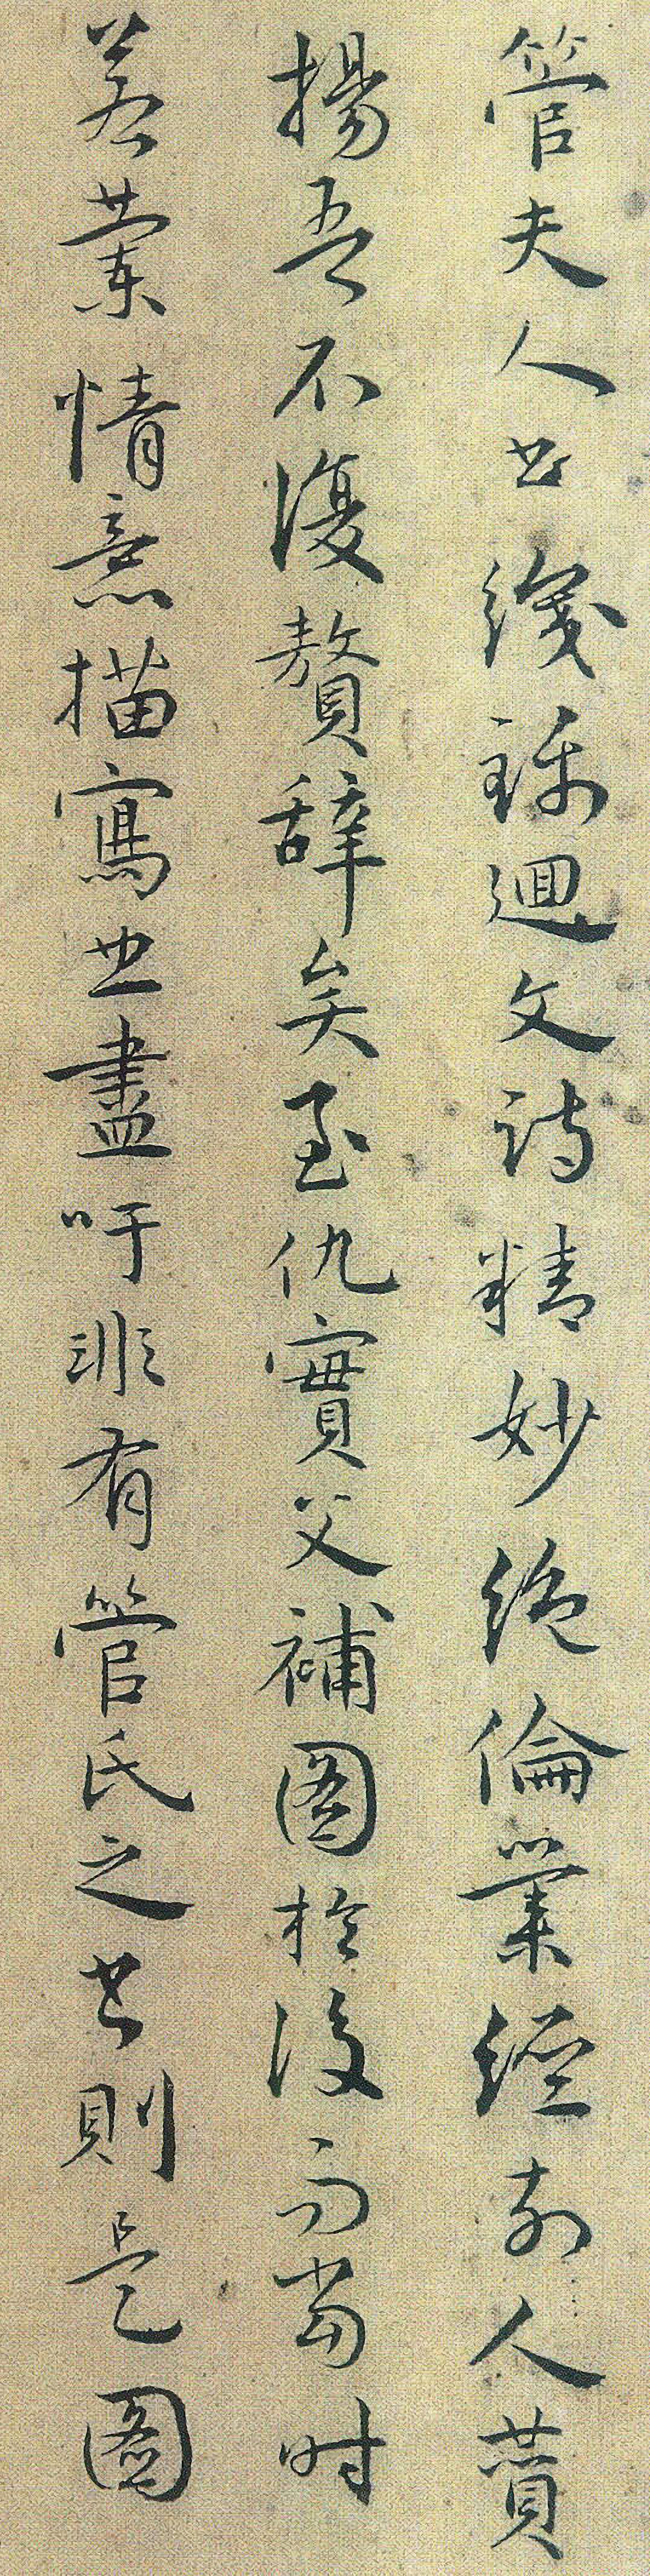 管夫人书織錦迴文詩精妙絕倫業經前人贊
揚吾不復贅辭矣至仇實父補圖於後而當時
若蘭情意描寫也盡吁非有管氏之书則是圖